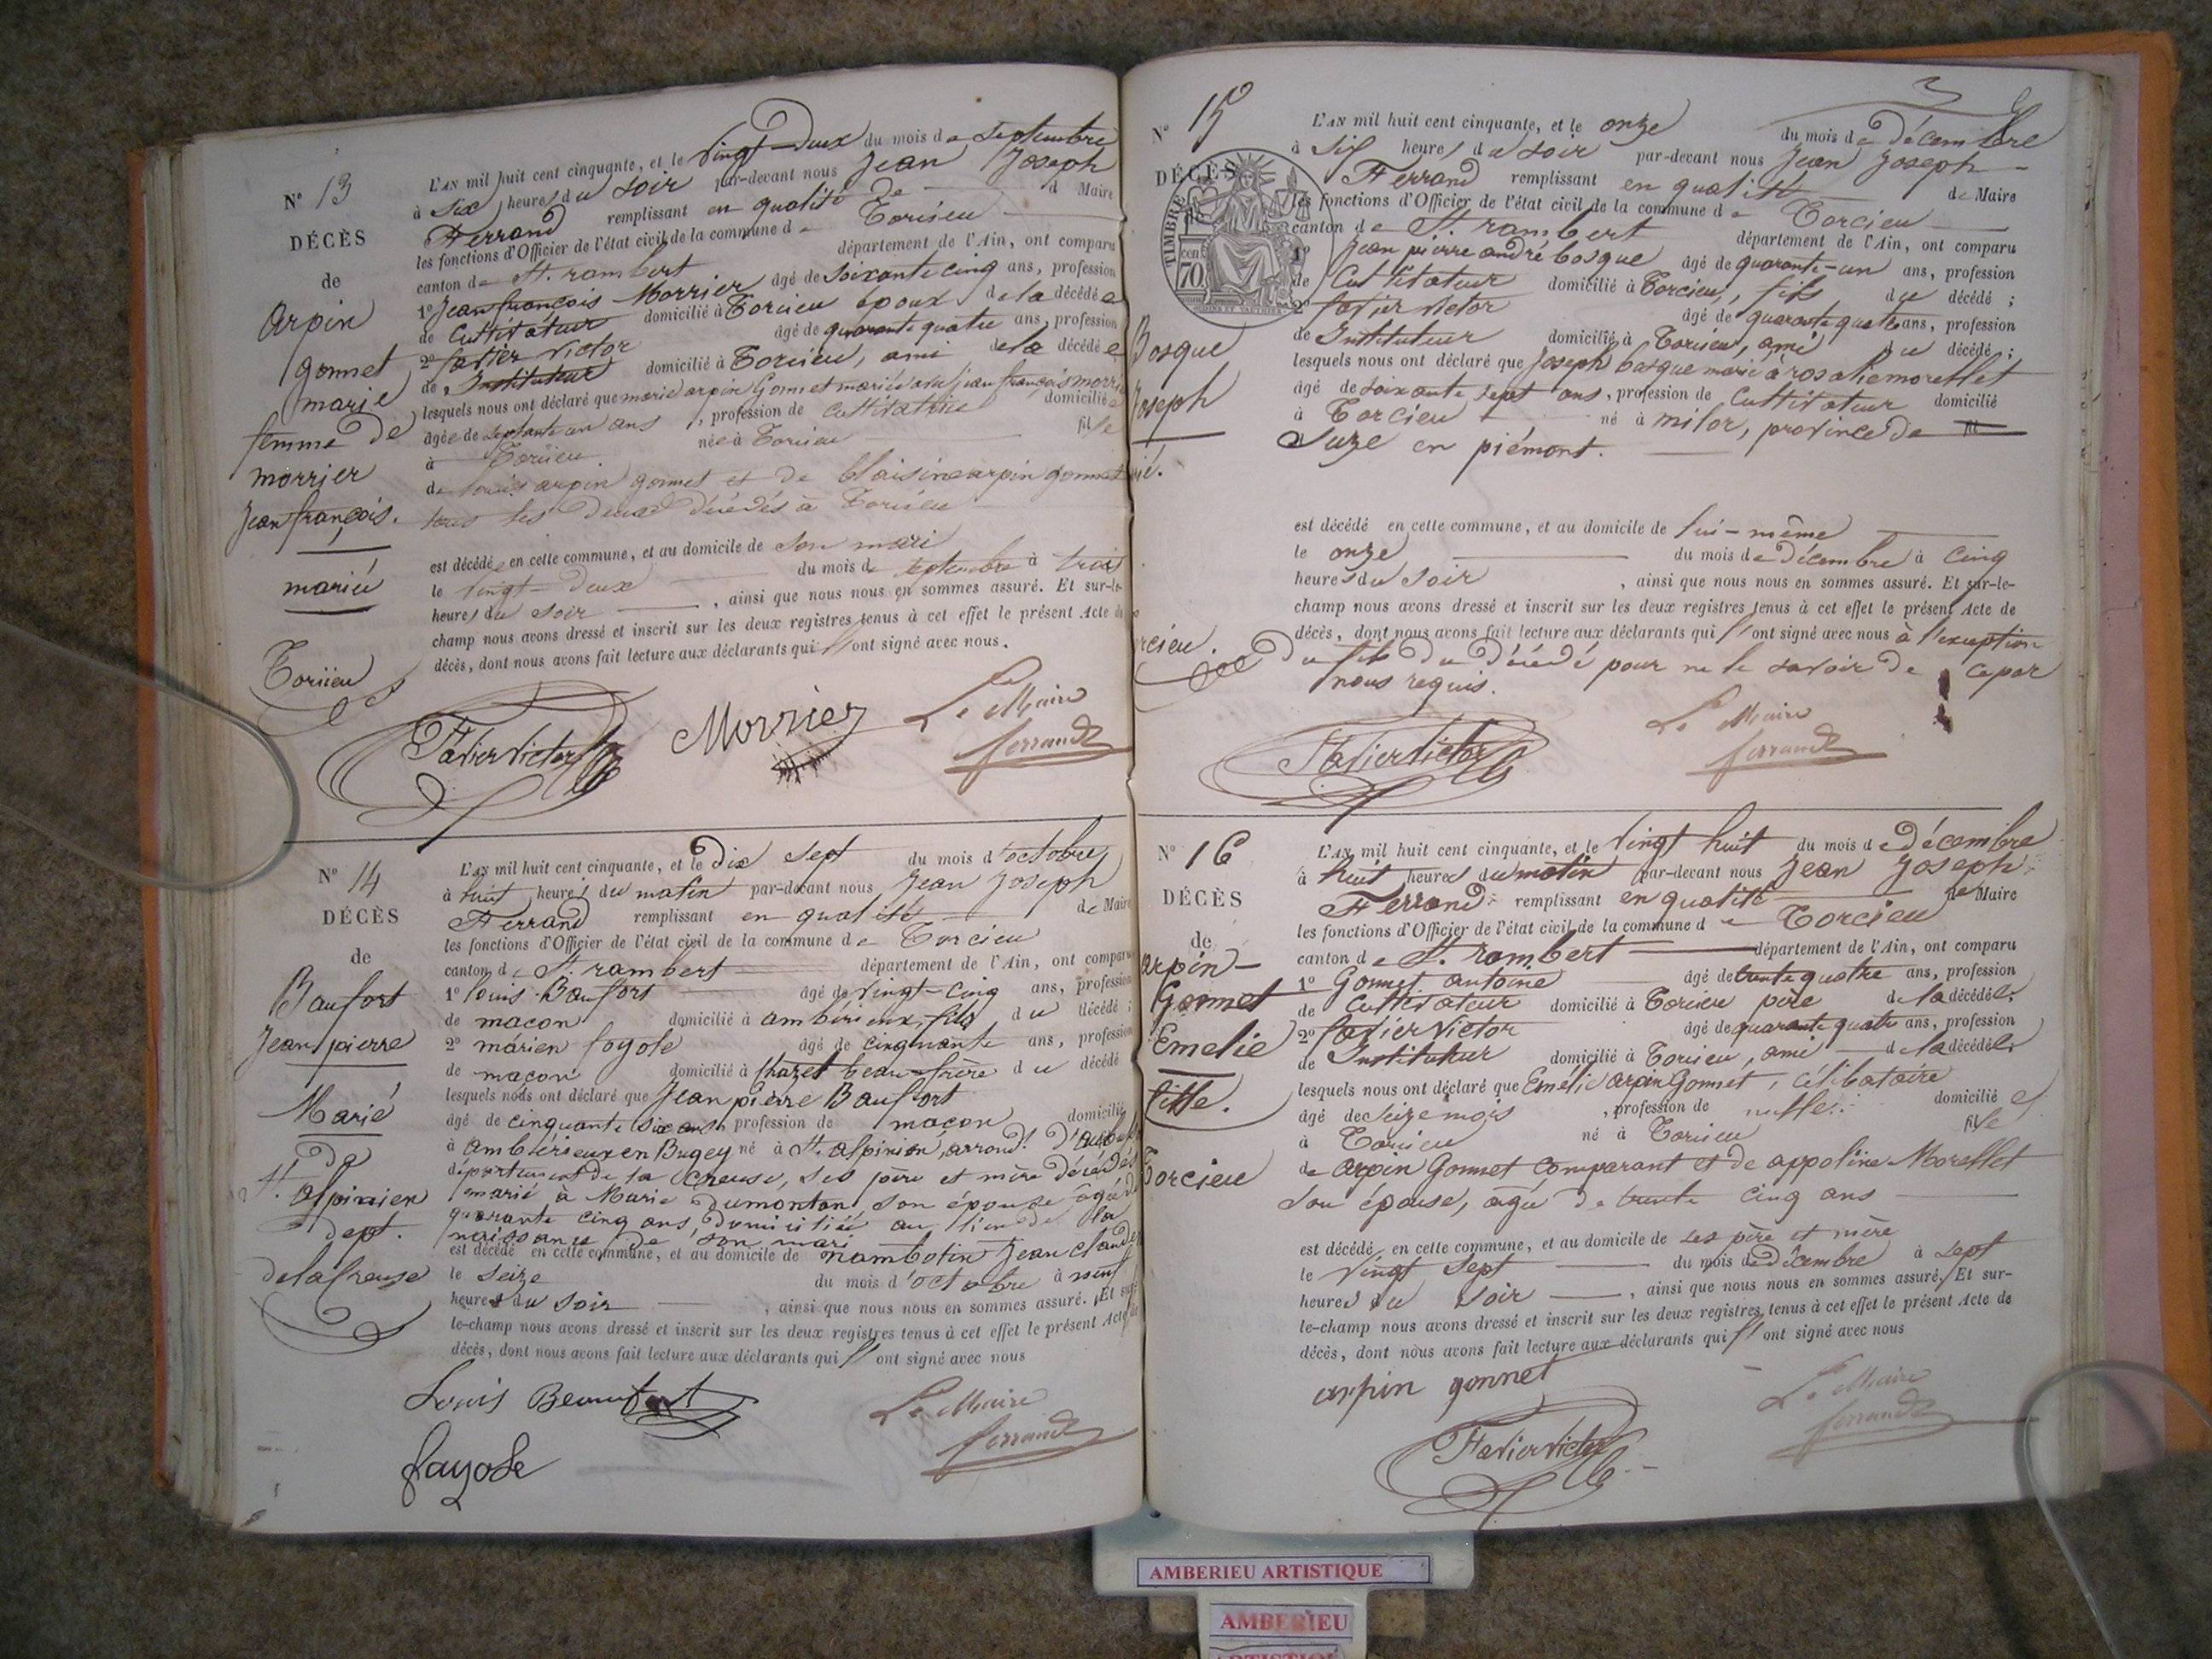 N° 13
DÉCÈS
de
Arpin
gonnet
marie
femme de
morrier
Jean françois.
mariée
Torcieu
L'AN mil huit cent cinquante, et le vingt-deux du mois de Septembre
à Six heures du soir par-devant nous Jean Joseph
Ferrand remplissant en qualité de d Maire
les fonctions d'Officier de l'état civil de la commune de Torcieu
canton de St. rambert département de l'Ain, ont comparu
1° Jean françois Morrier âgé de soixante cinq ans, profession
de Cultivateur domicilié à Torcieu époux de la décédée
2° favier Victor âgé de quarante quatre ans, profession
de Instituteur domicilié à Torcieu, ami de la décédée
lesquels nous ont déclaré que marie arpin Gonnet mariée avec jean françois morrier
âgée de septante un ans, profession de Cultivatrice domicilié
à Torcieu née à Torcieu fille
de louis arpin gonnet et de blaisine arpin gonnet
tous les deux décédés à Torcieu
est décédée en cette commune, et au domicile de son mari
le vingt-deux du mois de septembre à trois
heures du soir, ainsi que nous nous en sommes assuré. Et sur-le-
champ nous avons dressé et inscrit sur les deux registres tenus à cet effet le présent Acte de
décès, dont nous avons fait lecture aux déclarants qui l'ont signé avec nous.
Favier Victor Morrier Le Maire
ferrand
N° 14
DÉCÈS
de
Baufort
Jean pierre
Marié
De
St. alpinien
dept.
de la Creuse
L'AN mil huit cent cinquante, et le dix sept du mois d'octobre
à huit heures du matin par-devant nous Jean Joseph
Ferrand remplissant en qualité de Maire
les fonctions d'Officier de l'état civil de la commune de Torcieu
canton de St. rambert département de l'Ain, ont comparu
1° louis Baufort âgé de vingt-cinq ans, profession
de maçon domicilié à ambérieux, fils du décédé ;
2° marien fayole âgé de cinquante ans, profession
de maçon domicilié à Chazet beau-frère du décédé
lesquels nous ont déclaré que Jean pierre Baufort
âgé de cinquante six ans, profession de maçon domicilié
à ambérieux en Bugey né à St. alpinien, arrond.t d'aubusson
département de la Creuse, ses père et mère décédés
marié à Marie Dumontan, son épouse âgée de
quarante cinq ans, domiciliée au lieu de la
naissance de son mari
est décédé en cette commune, et au domicile de nambotin Jean claude
le seize du mois d'octobre à neuf
heures du soir, ainsi que nous nous en sommes assuré. Et sur-
le-champ nous avons dressé et inscrit sur les deux registres tenus à cet effet le présent Acte de
décès, dont nous avons fait lecture aux déclarants qui l'ont signé avec nous
Louis Beaufort Le Maire
fayole ferrand
N° 15
DÉCÈS
TIMBRE
70
Bosque
Joseph
L'AN mil huit cent cinquante, et le onze du mois de décembre
à six heures du soir par-devant nous Jean Joseph
Ferrand remplissant en qualité de Maire
les fonctions d'Officier de l'état civil de la commune de Torcieu
canton de St. rambert département de l'Ain, ont comparu
1° Jean pierre andré bosque âgé de quarante-un ans, profession
de Cultivateur domicilié à Torcieu, fils du décédé ;
2° favier victor âgé de quarante quatre ans, profession
de Instituteur domicilié à Torcieu, ami du décédé ;
lesquels nous ont déclaré que Joseph bosque marié à rosalie morellet
âgé de soixante sept ans, profession de Cultivateur domicilié
à Torcieu né à milor, province de fil
Suze en piémont.
est décédé en cette commune, et au domicile de lui-même
le onze du mois de décembre à cinq
heures du soir, ainsi que nous nous en sommes assuré. Et sur-le-
champ nous avons dressé et inscrit sur les deux registres tenus à cet effet le présent Acte de
décès, dont nous avons fait lecture aux déclarants qui l'ont signé avec nous à l'exception
du fils du décédé pour ne le savoir de ce par
nous requis.
Favier Victor Le Maire
ferrand
N° 16
DÉCÈS
de
Arpin-
Gonnet
Emelie
fille.
Torcieu
L'AN mil huit cent cinquante, et le vingt huit du mois de décembre
à huit heures du matin par-devant nous Jean Joseph
Ferrand remplissant en qualité de Maire
les fonctions d'Officier de l'état civil de la commune de Torcieu
canton de St. rambert département de l'Ain, ont comparu
1° Gonnet antoine âgé de trente quatre ans, profession
de Cultivateur domicilié à Torcieu père de la décédée
2° favier Victor âgé de quarante quatre ans, profession
de Instituteur domicilié à Torcieu, ami de la décédée
lesquels nous ont déclaré que Emélie Arpin Gonnet, célibataire
âgé de seize mois, profession de nulle domicilié
à Torcieu né à Torcieu fille
de arpin Gonnet comparant et de appoline Morellet
son épouse, agée de trente cinq ans
est décédé en cette commune, et au domicile de ses père et mère
le vingt sept du mois de décembre à sept
heures du soir, ainsi que nous nous en sommes assuré. Et sur-
le-champ nous avons dressé et inscrit sur les deux registres tenus à cet effet le présent Acte de
décès, dont nous avons fait lecture aux déclarants qui l'ont signé avec nous
arpin gonnet Le Maire
Favier Victor ferrand
AMBERIEU ARTISTIQUE
AMBERIEU
ARTISTIQUE